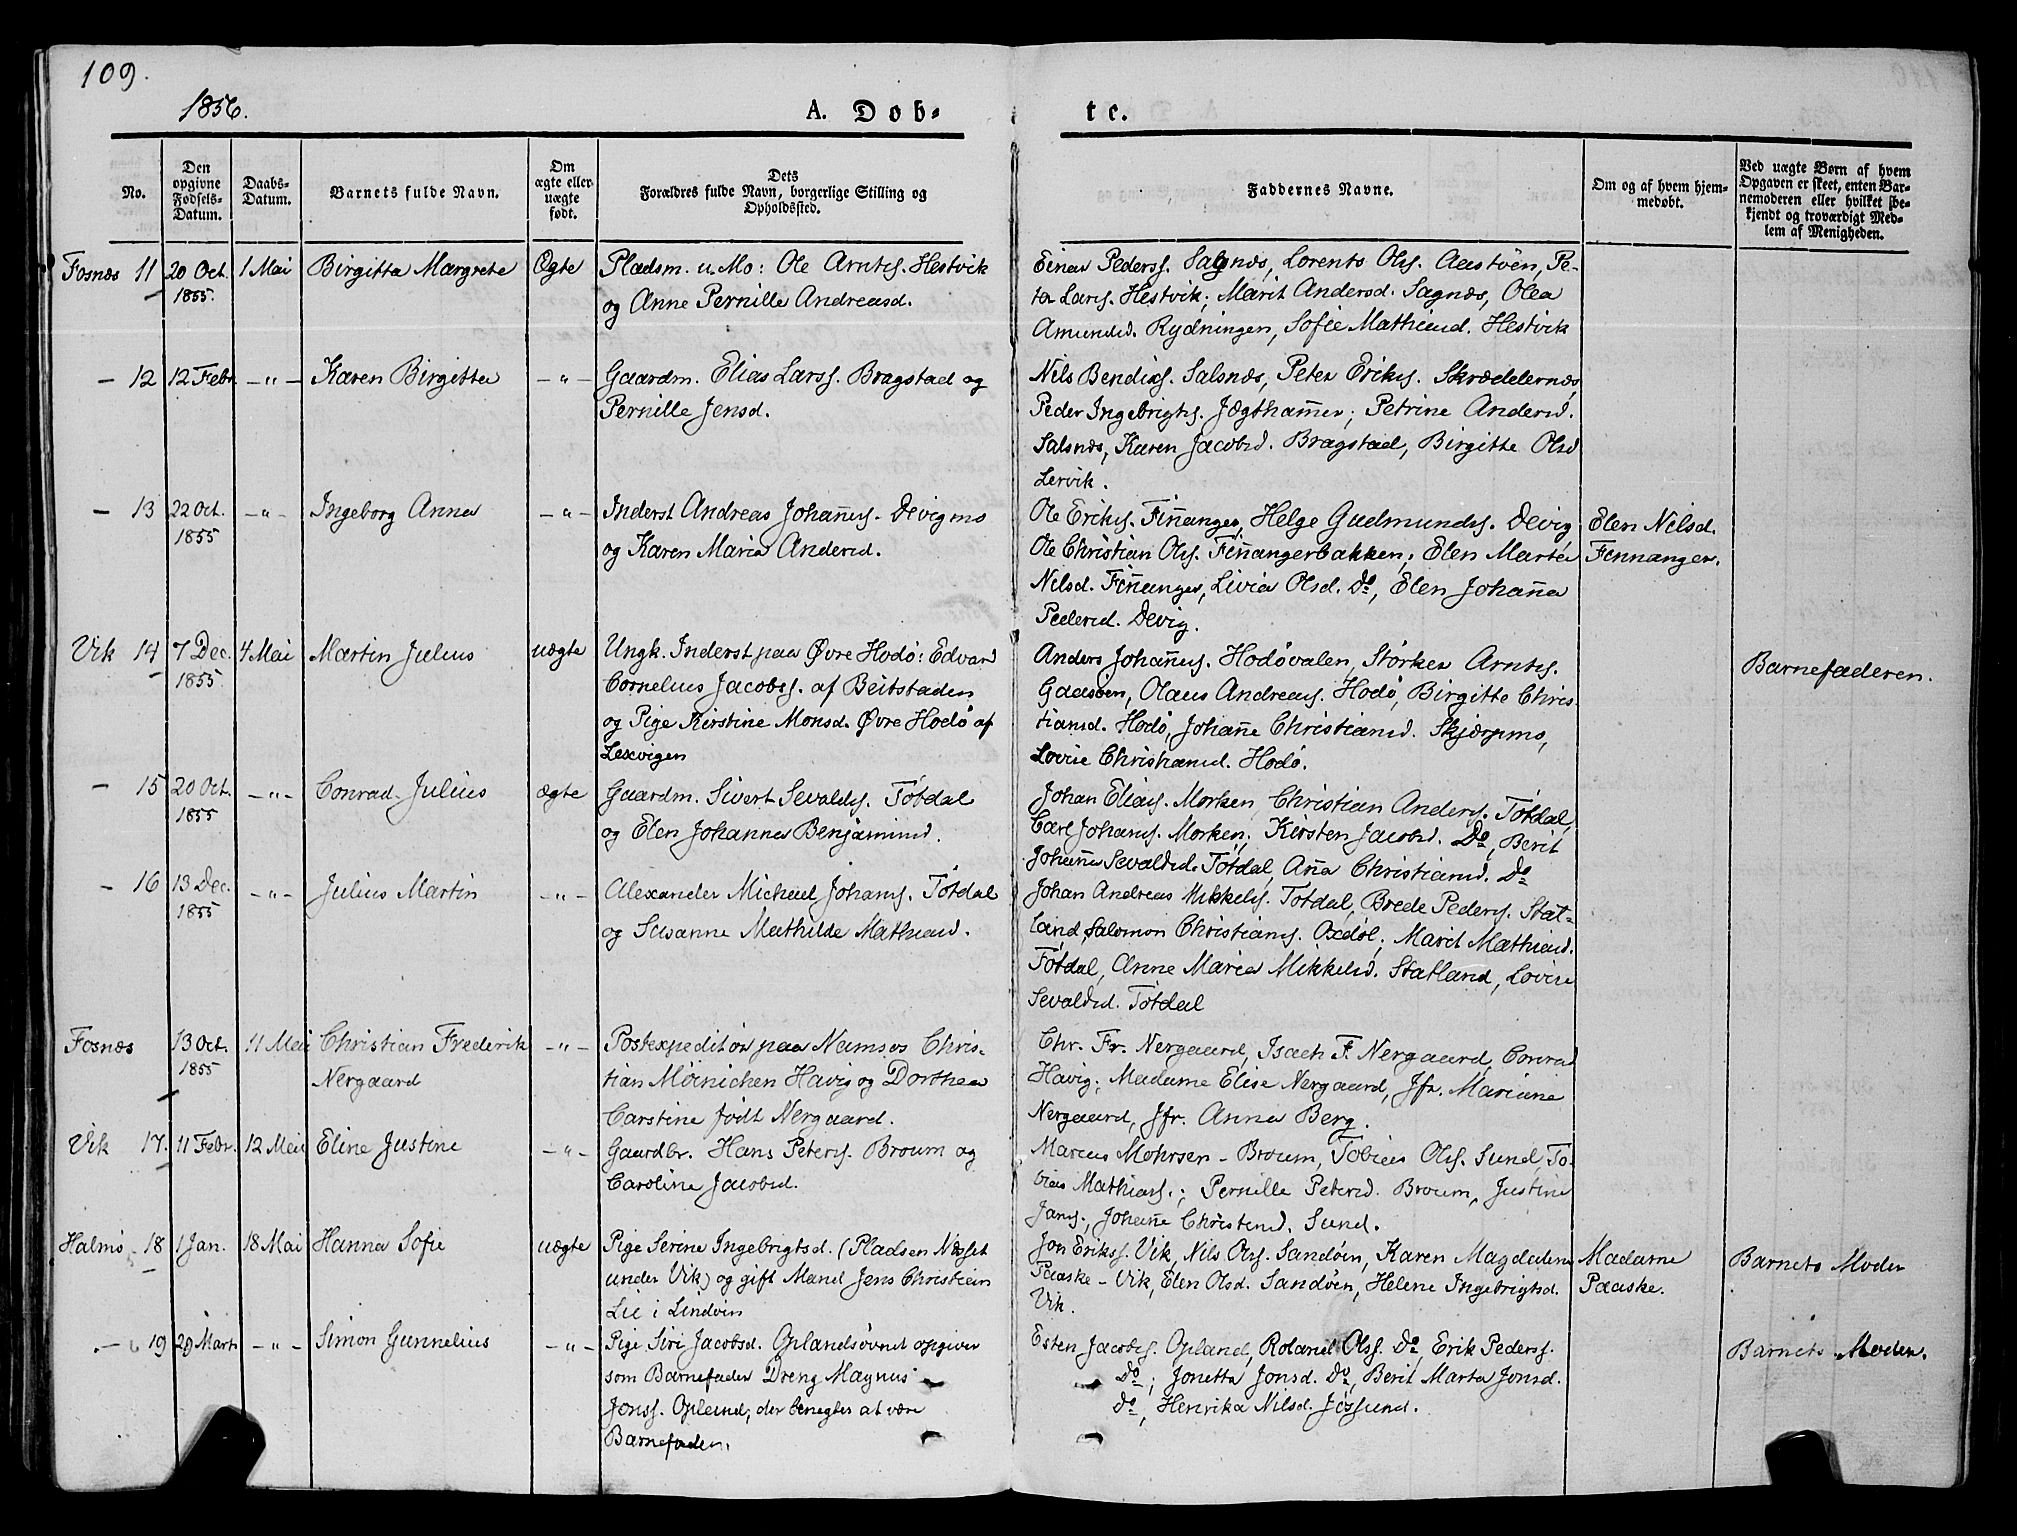 109.
1856.
A. Døb-
te.
No.
Den opgivne Fødsels-Datum.
Daabs-Datum.
Barnets fulde Navn.
Om ægte eller uægte født.
Dets Forældres fulde Navn, borgerlige Stilling og Opholdssted.
Faddernes Navne.
Om og af hvem hjem-medøbt.
Ved uægte Børn af hvem Opgaven er skeet, enten Bar-nemoderen eller hvilket be-kjendt og troværdigt Med-lem af Menigheden.
Fosnæs 11 20 Oct. 1855. 1 Mai Birgitta Margrete Ægte
Pladsm. u. Mo: Ole Arnts. Hestvik
og Anne Pernille Andreasd.
Einar Peders. Salsnæs, Lorents Ols. Aastøen, Pe-
ter Lars. Hestvik; Marit Andersd. Sagnæs, Olea
Amundsd. Rydningen, Sofie Mathiasd. Hestvik
— 12 12 Febr. —"— Karen Birgitta —"—
Gaardm. Elias Larss. Bragstad og
Pernille Jensd.
Nils Bendixs. Salsnæs, Peter Eriks. Skræddernæs
Peder Ingebrigts. Jægtham̄er; Petrine Andersd.
Salsnæs, Karen Jacobsd. Bragstad, Birgitte Olsd
Lervik.
— 13 22 Oct. 1855 —"— Ingeborg Anna —"—
Inderst Andreas Johan̄es. Devigmo
og Karen Maria Andersd.
Ole Eriks. Fin̄anger, Helge Gudmunds. Devig
Ole Christian Ols. Fin̄angerbakken; Elen Marta
Nilsd. Fin̄anger, Livia Olsd. Do, Elen Johan̄a
Pedersd. Devig.
Elen Nilsd.
Finnanger.
Vik 14 7 Dec. 1855 4 Mai Martin Julius uægte
Ungk. Inderst paa Øvre Hodø: Edvard
Cornelius Jacobss. af Beitstaden
og Pige Kirstine Monsd. Øvre Hodø af
Lexvigen
Anders Johan̄es. Hodøvalen, Størker Arnts.
Gaasøen, Olaus Andreas. Hodø, Birgitte Chris-
tiansd. Hodø, Johan̄e Christiansd. Skjærpmo,
Lovise Christiansd. Hodø.
Barnefaderen.
— 15 20 Oct. 1855 —"— Conrad Julius ægte
Gaardm. Sivert Sevalds. Tøtdal
og Elen Johanna Benjaminsd.
Johan Elias. Morken, Christian Anders. Tøtdal,
Carl Johans. Morken; Kirsten Jacobsd. Do, Berit
Johan̄a Sevaldsd. Tøtdal, An̄a Christiansd. Do
— 16 13 Dec. 1855 —"— Julius Martin —"—
Alexander Michael Johans. Tøtdal
og Susanne Mathilde Mathiasd.
Johan Andreas Mikkels. Totdal, Brede Peders. Stat-
land, Salomon Christians. Oxdøl; Marit Mathiasd.
Tøtdal, Anne Maria Mikkelsd. Statland, Lovise
Sevaldsd. Tøtdal
Fosnæs 13 Oct. 1855 11 Mai Christian Frederik —"—
Nergaard
Postexpeditør paa Namsos Chris-
tian Møinichen Havig og Dorthea
Carstine født Nergaard.
Chr. Fr. Nergaard, Isach F. Nergaard, Conrad
Havig; Madame Elise Nergaard, Jfr. Mariane
Nergaard, Jfr. Anna Berg.
Vik 17. 11 Febr. 12 Mai Eline Justine —"—
Gaardbr. Hans Peters. Broum og
Caroline Jacobsd.
Marius Mohrsen - Broum, Tobias Ols. Sund, To-
bias Mathias.; Pernille Petersd. Broum, Justine
Jans., Johan̄e Christensd. Sund.
Halmø 18 1 Jan. 18 Mai Hanna Sofie uægte
Pige Serine Ingebrigtsd. (Pladsen Næsset
under Vik) og gift Mand Jens Christian
Lie i Lindvin
Jon Erikss. Vik, Nils Ols. Sandøen, Karen Magdalena
Paaske - Vik, Elen Olsd. Sandøen, Helene Ingebrigtsd.
Vik.
Madame
Paaske.
Barnets Moder
— 19 29 Marts —"— Simon Gunnelius —"—
Pige Siri Jacobsd. Oplandsøvnet opgiver
som Barnefader Dreng Magnus
Jonss. Opland, der benegter at være
Barnefaderen.
Esten Jacobs. Opland, Roland Olss. Do, Erik Pederss.
Do; Jonetta Jonsd. Do, Berit Marta Jonsd.
Do, Henrika Nilsd. Jøssund.
Barnets Moder.